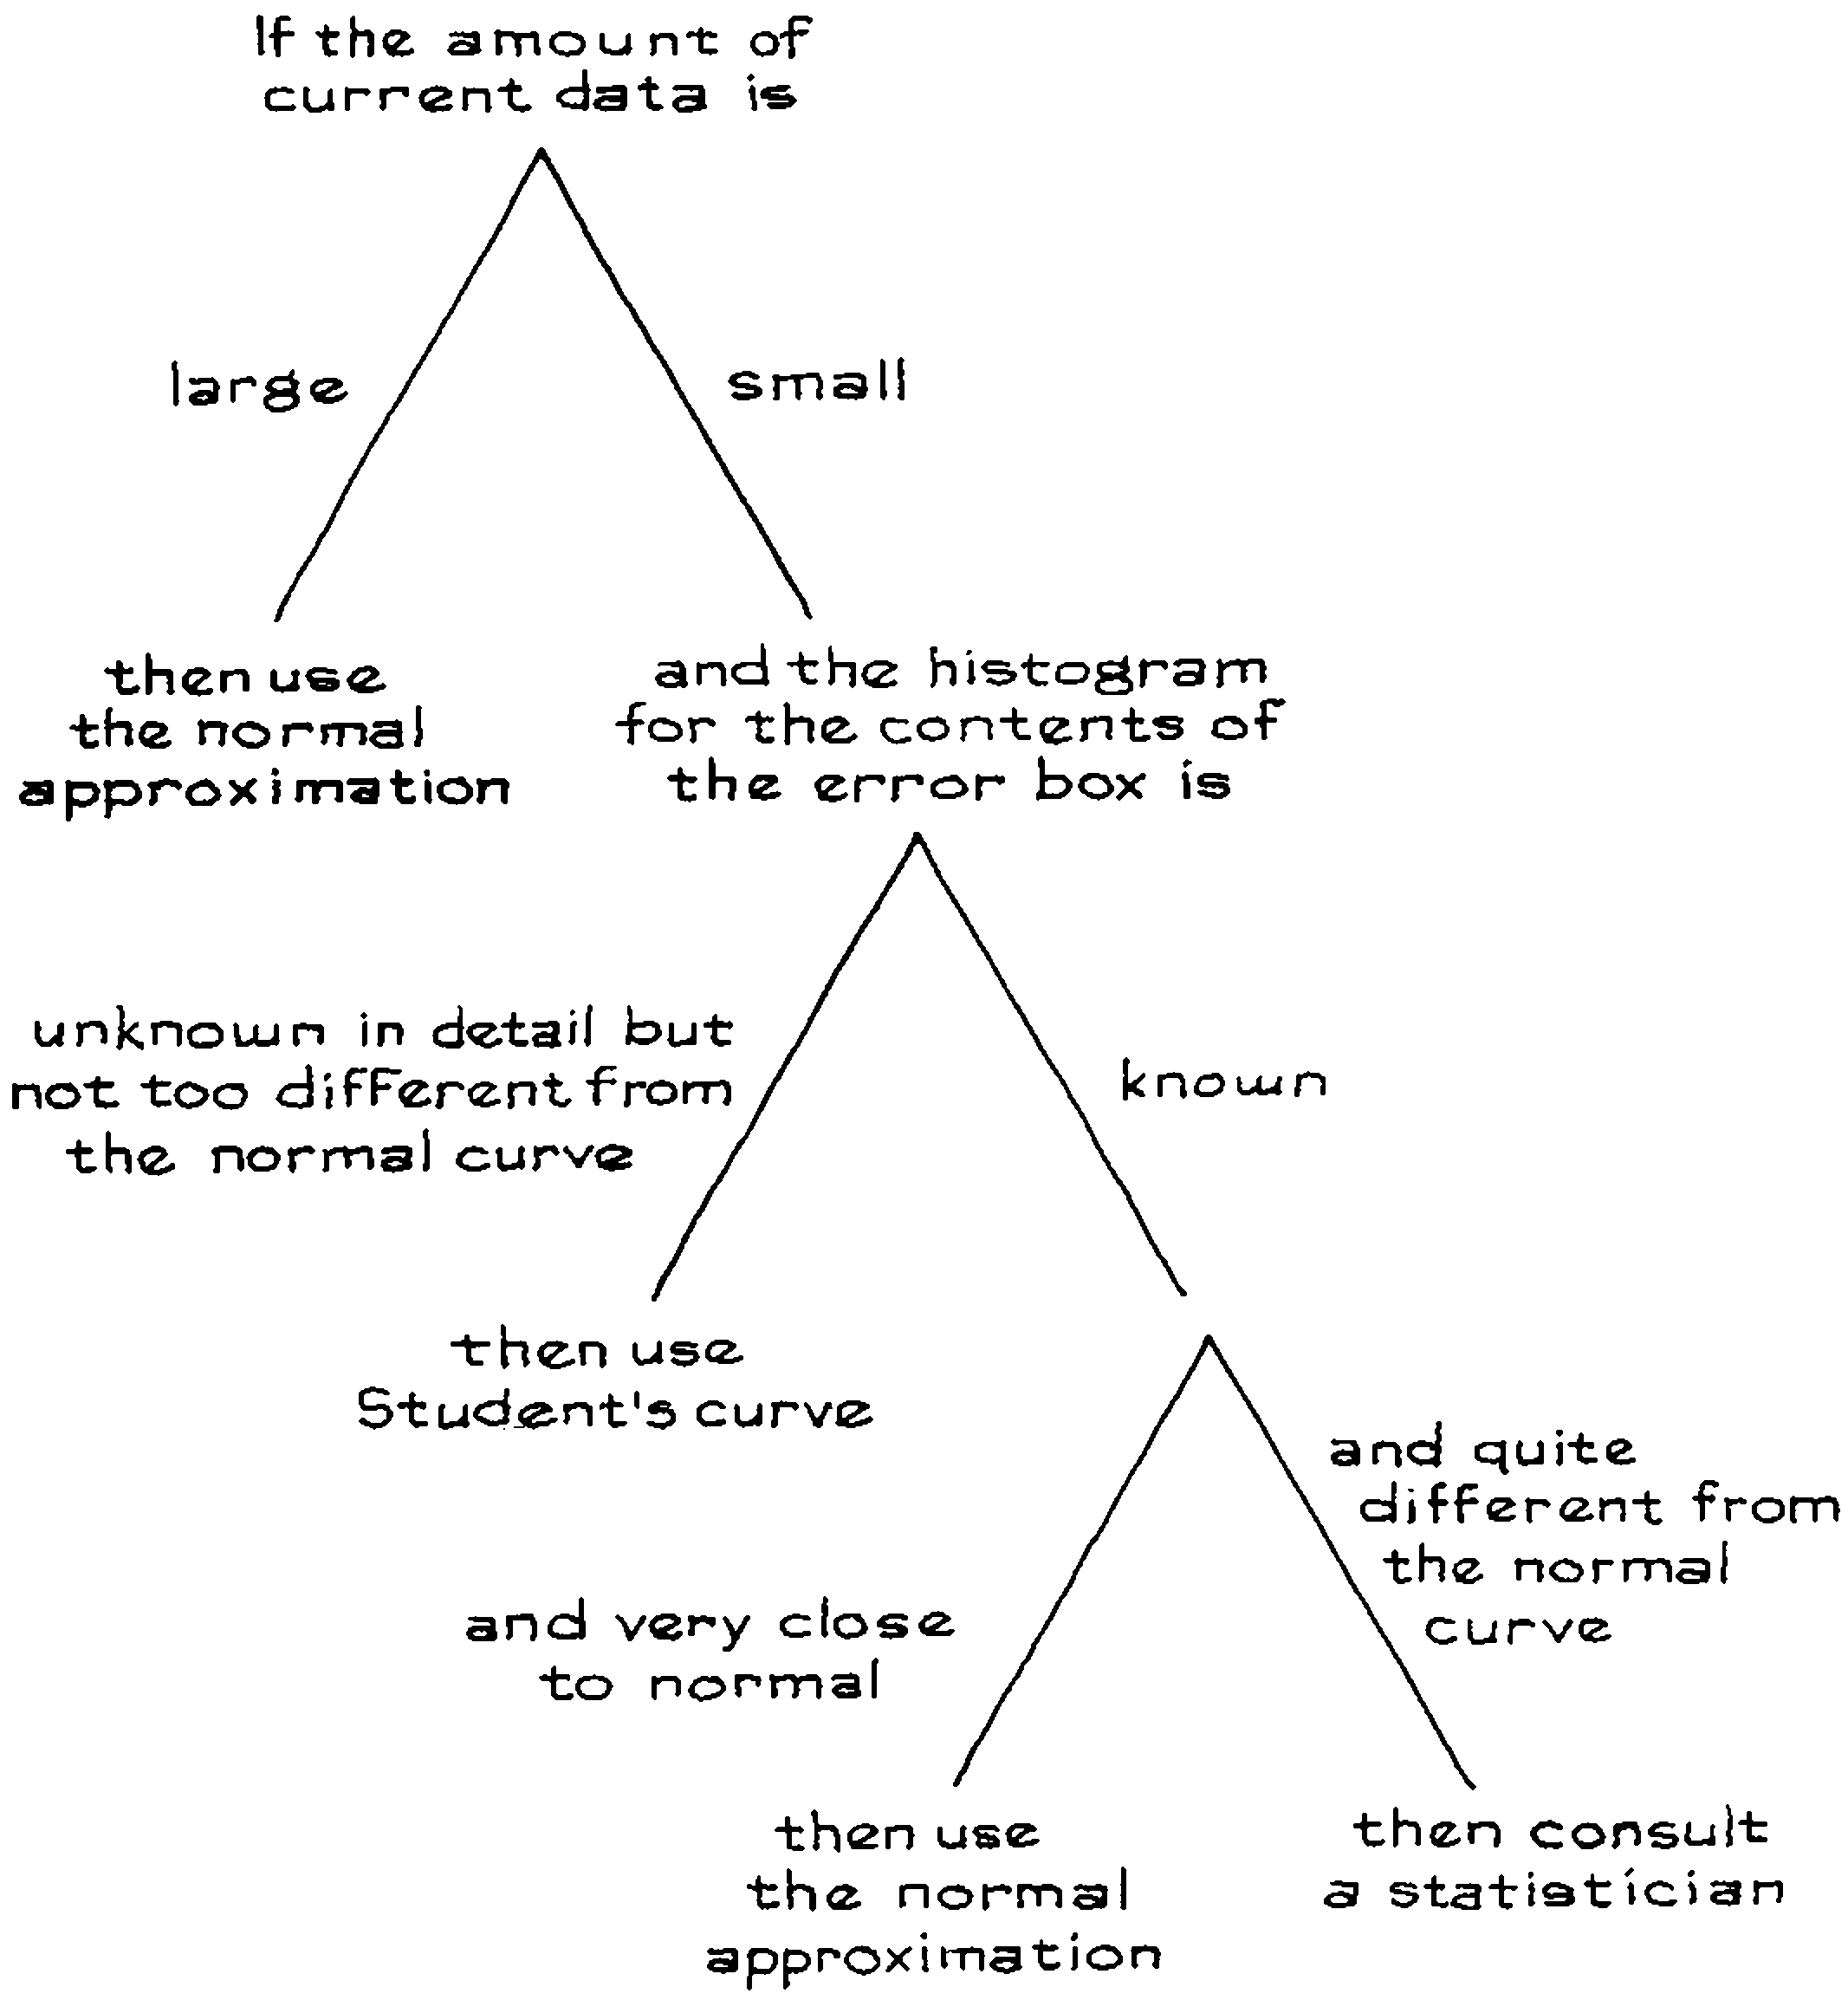 If the amount of
current data is
large
small
then use
the normal
approximation
and the histogram
for the contents of
the error box is
unknown in detail but
not too different from
the normal curve
known
then use
Student's curve
and quite
different from
the normal
curve
and very close
to normal
then use
the normal
approximation
then consult
a statistician